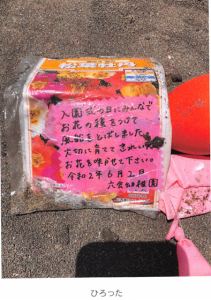 松葉牡丹
入園式の日にみんなで
お花の種をつけて
風船をとばしました。
大切に育てて きれいな
お花を咲かせて下さい。
令和2年6月2日
幼稚園
ひろった